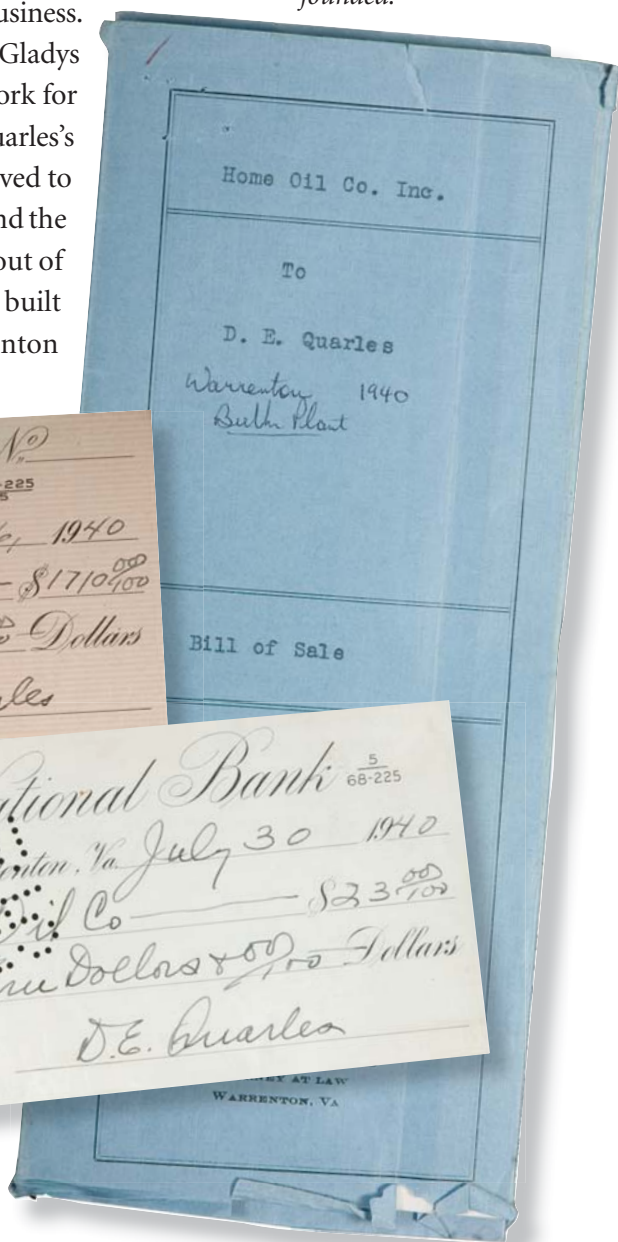 founded.
usiness.
Gladys
ork for
uarles's
ved to
nd the
out of
built
nton
Home Oil Co. Inc.
To
D. E. Quarles
Warrenton 1940
Bulk Plant
Bill of Sale
No
225
5
6, 1940
$1710 00/100
Dollars
les
tional Bank 5
68-225
enton, Va. July 30 1940
Oil Co $23 00/100
Dollars & 00/100 Dollars
D.E. Quarles
EY AT LAW
WARRENTON, VA